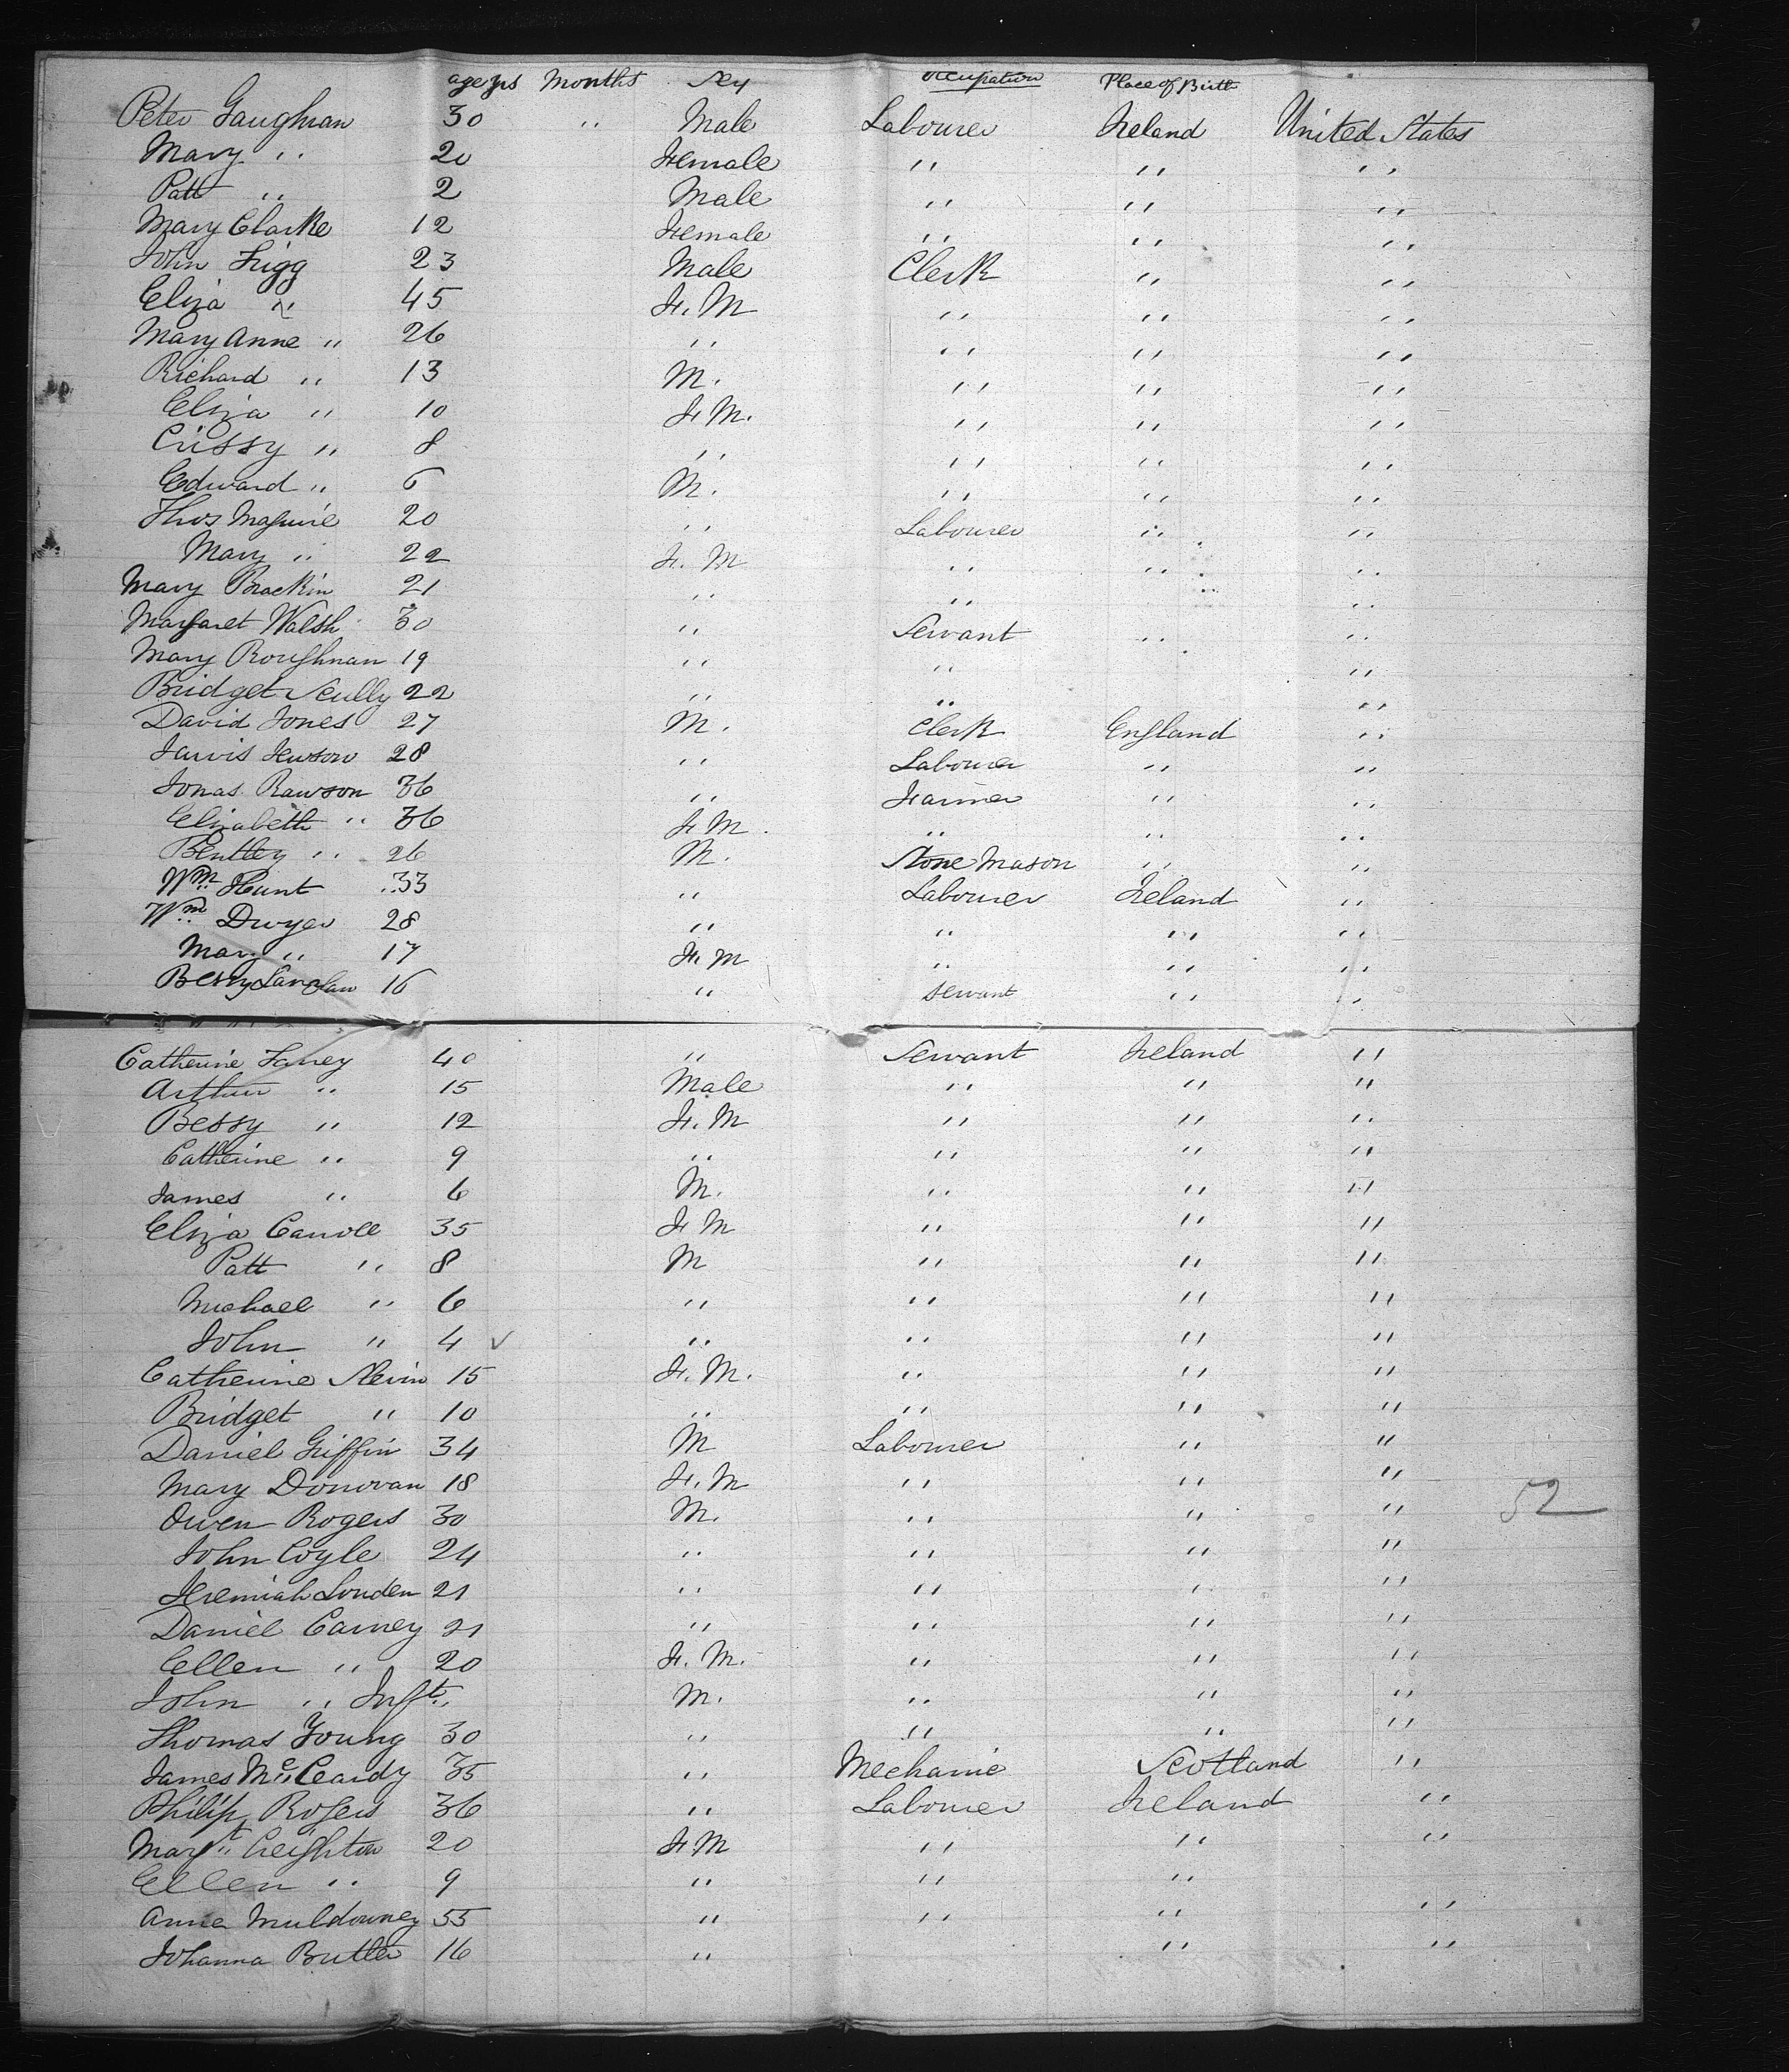 age yrs Months Sex Occupation Place of Birth
Peter Gaughran 30 " Male Labourer Ireland United States
Mary " 20 Female " " "
Patt " 2 Male " " "
Mary Clarke 12 Female " " "
John Frigg 23 Male Clerk " "
Eliza " 45 F. M " " "
Mary Anne " 26 " " " "
Richard " 13 M. " " "
Eliza " 10 F M. " " "
Crissy " 8 " " " "
Edward " 6 M. " " "
Thos Maguire 20 " Labourer " "
Mary " 22 F. M " " "
Mary Brackin 21 " " " "
Margaret Walsh 30 " Servant " "
Mary Roughnan 19 " " "
Bridget Scully 22 " " "
David Jones 27 M. Clerk England "
Jarvis Hewson 28 " Labourer " "
Jonas Rawson 36 " Farmer " "
Elizabeth " 36 F M. " " "
Bentley " 26 M. Stone Mason " "
Wm Hunt 33 " Labourer Ireland "
Wm Dwyer 28 " " " "
Mary " 17 F. M " " "
Bessy 16 " Servant " "
Catherine 40 " Servant Ireland "
Arthur " 15 Male " " "
Bessy " 12 F. M " " "
Catherine " 9 " " " "
James " 6 M. " " "
Eliza Carroll 35 F M " " "
Patt " 8 M " " "
Michael " 6 " " " "
John " 4 ✓ " " " "
Catherine Nevin 15 F. M. " " "
Bridget " 10 " " " "
Daniel Griffin 34 M Labourer " "
Mary Donovan 18 F. M " " "
Owen Rogers 30 M. " " " 52
John Coyle 24 " " " "
Jeremiah Louden 21 " " " "
Daniel Carney 21 " " " "
Ellen " 20 F. M. " " "
John " Inft. M. " " "
Thomas Young 30 " " " "
James McCeardy 35 " Mechanic Scotland "
Philip Rogers 36 " Labourer Ireland "
Margt Creighton 20 F M " " "
Ellen " 9 " " "
Anne Muldowney 55 " " " "
Johanna Butler 16 " " "